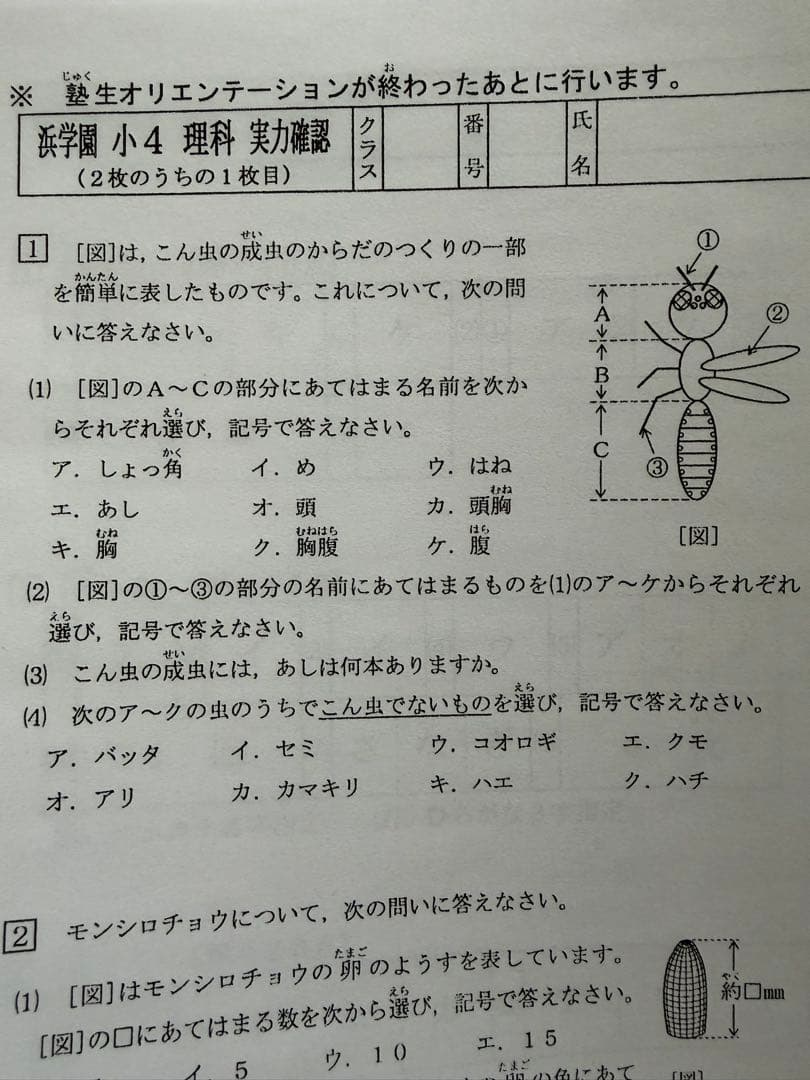 ※ 塾生オリエンテーションが終わったあとに行います。
浜学園 小4 理科 実力確認
(2枚のうちの1枚目)
クラス
番号
氏名
1 [図]は,こん虫の成虫のからだのつくりの一部
を簡単に表したものです。これについて,次の問
いに答えなさい。
(1) [図]のA~Cの部分にあてはまる名前を次か
らそれぞれ選び,記号で答えなさい。
ア.しょっ角 イ.め ウ.はね
エ.あし オ.頭 カ.頭胸
キ.胸 ク.胸腹 ケ.腹
①
②
③
A
B
C
[図]
(2) [図]の①~③の部分の名前にあてはまるものを(1)のア~ケからそれぞれ
選び,記号で答えなさい。
(3) こん虫の成虫には,あしは何本ありますか。
(4) 次のア~クの虫のうちでこん虫でないものを選び,記号で答えなさい。
ア.バッタ イ.セミ ウ.コオロギ エ.クモ
オ.アリ カ.カマキリ キ.ハエ ク.ハチ
2 モンシロチョウについて,次の問いに答えなさい。
(1) [図]はモンシロチョウの卵のようすを表しています。
[図]の□にあてはまる数を次から選び,記号で答えなさい。
イ.5 ウ.10 エ.15
約□mm
卵の色にあて
[図]